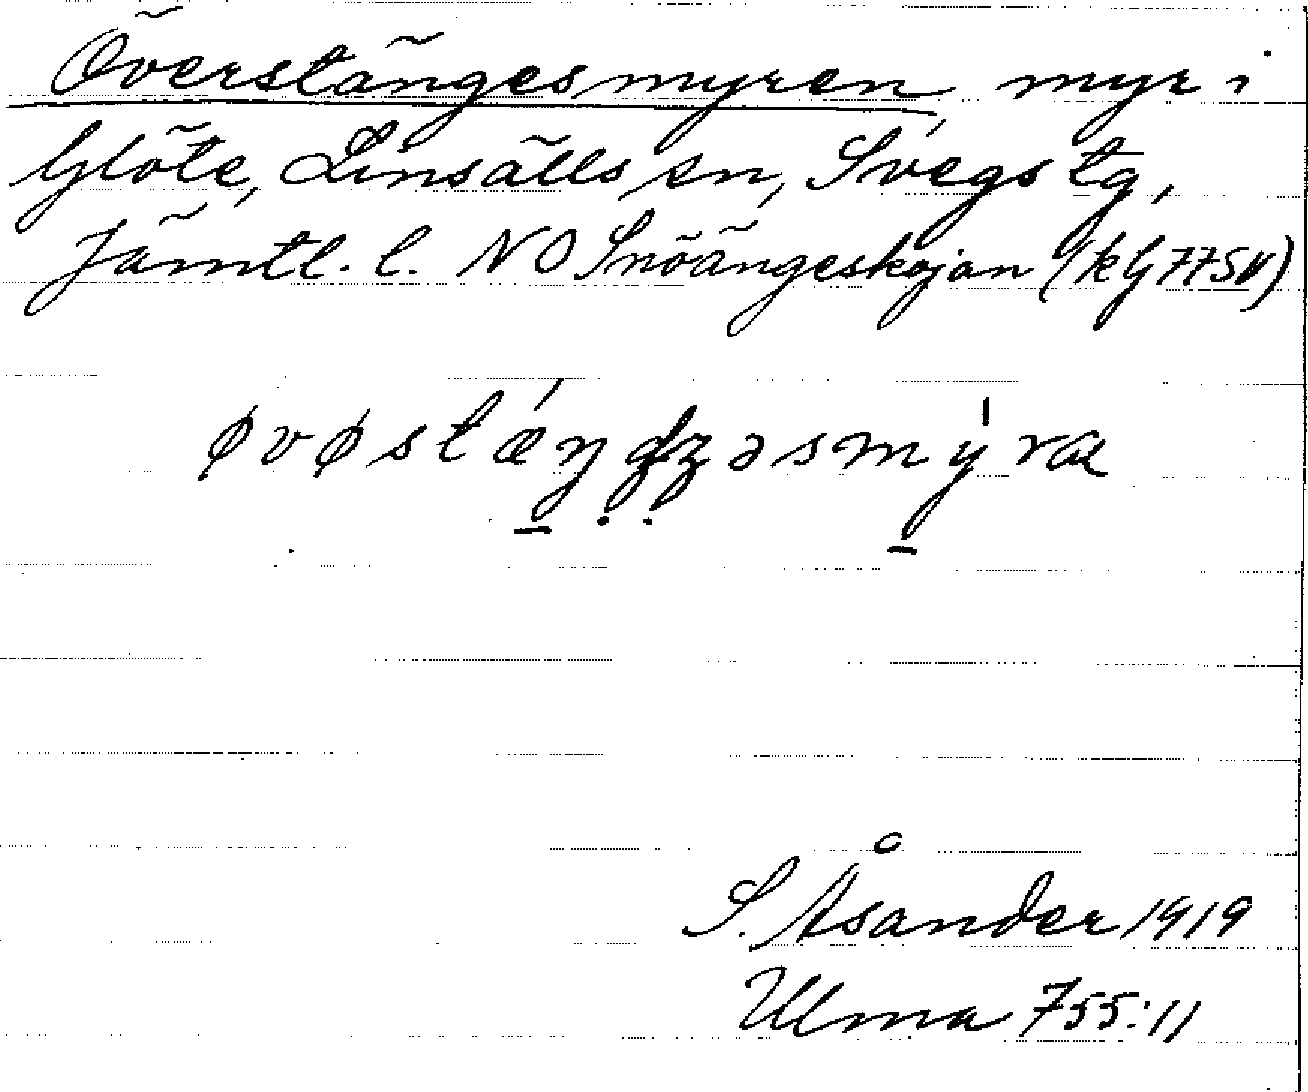 Överstängesmyren, myr i
Glöte, Linsälls sn, Svegs tg,
Jämtl. l. NO Snöängeskojan (kG7758)
øvøstǽŋdʐəsmýra
S. Åsander 1919
Ulma 755:11